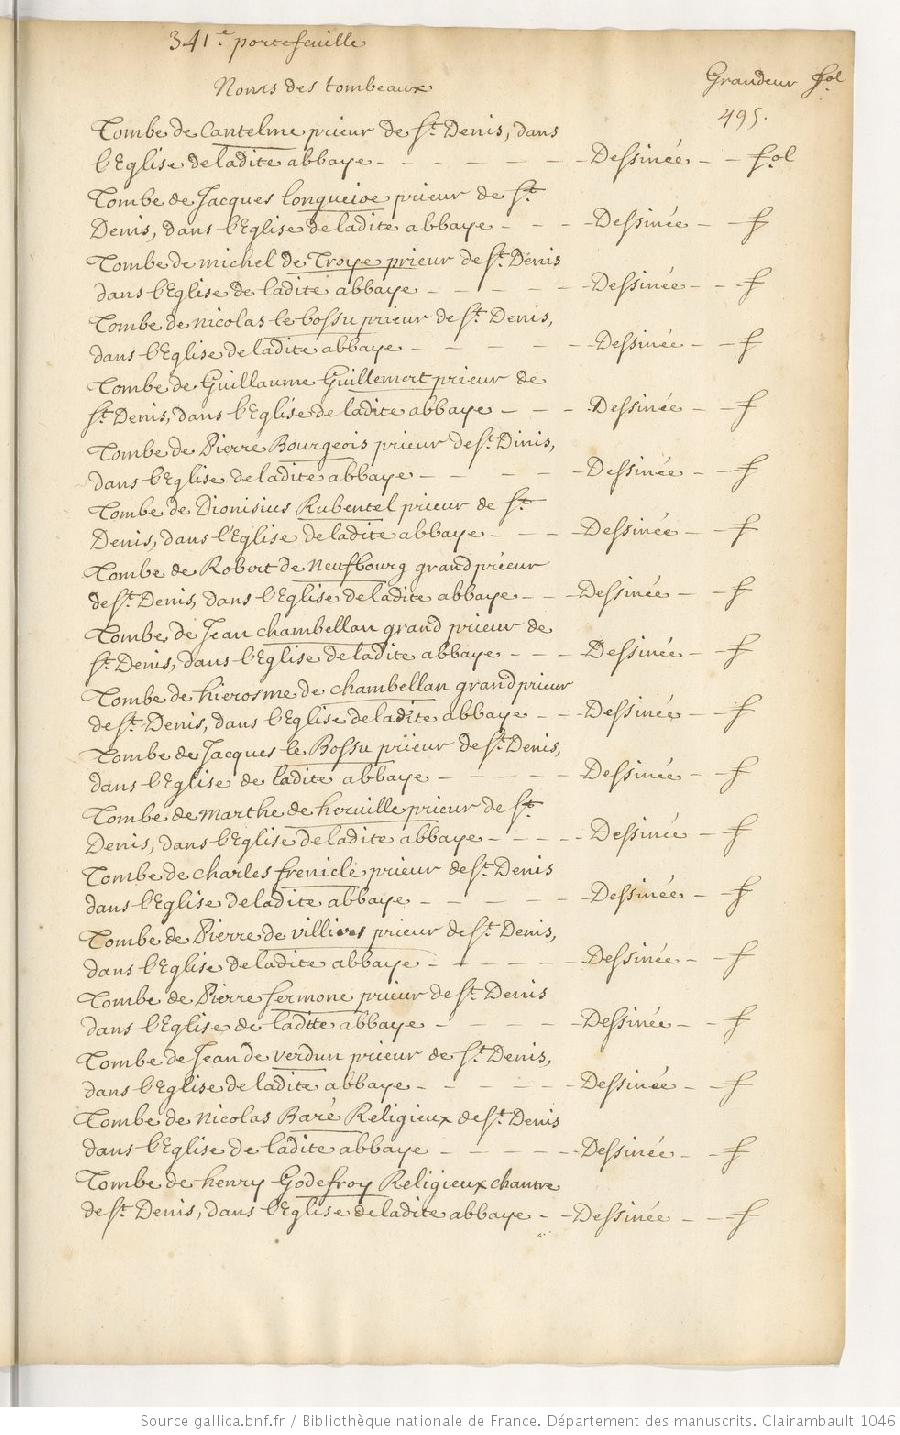 341.e portefeuille
Noms des tombeaux
Grandeur fol
495.
Tombe de Cantelme prieur de St. Denis, dans
l'Eglise de ladite abbaye - - - - - - Dessinée - - fol
Tombe de Jacques Longueioe prieur de St.
Denis, dans l'Eglise de ladite abbaye - - - Dessinée - - f
Tombe de michel de Troye prieur de St. Denis
dans l'Eglise de ladite abbaye - - - - - - Dessinée - - f
Tombe de nicolas le bossu prieur de St. Denis,
dans l'Eglise de ladite abbaye - - - - - Dessinée - - f
Tombe de Guillaume Guillemort prieur de
St. Denis, dans l'Eglise de ladite abbaye - - - Dessinée - - f
Tombe de Pierre Bourgeois prieur de St. Dinis,
dans l'Eglise de ladite abbaye - - - - - Dessinée - - f
Tombe de Dionisius Rubentel prieur de St.
Denis, dans l'Eglise de ladite abbaye - - - Dessinée - - f
Tombe de Robert de Neufbourg grand prieur
de St. Denis, dans l'Eglise de ladite abbaye - - - Dessinée - - f
Tombe de Jean chambellan grand prieur de
St. Denis, dans l'Eglise de ladite abbaye - - - Dessinée - - f
Tombe de hierosme de chambellan grand prieur
de St. Denis, dans l'Eglise de ladite abbaye - - Dessinée - - f
Tombe de Jacques le Bossu prieur de St. Denis,
dans l'Eglise de ladite abbaye - - - - - Dessinée - - f
Tombe de marthe de heruille prieur de St.
Denis, dans l'Eglise de ladite abbaye - - - - Dessinée - f
Tombe de charles frenicle prieur de St. Denis
dans l'Eglise de ladite abbaye - - - - - - Dessinée - - f
Tombe de Pierre de villiers prieur de St. Denis,
dans l'Eglise de ladite abbaye - - - - - Dessinée - - f
Tombe de Pierre fermone prieur de St. Denis
dans l'Eglise de ladite abbaye - - - - - Dessinée - - f
Tombe de Jean de verdun prieur de St. Denis,
dans l'Eglise de ladite abbaye - - - - - Dessinée - - f
Tombe de Nicolas Baré Religieux de St. Denis
dans l'Eglise de ladite abbaye - - - - - - Dessinée - - f
Tombe de henry Godefroy Religieux chantre
de St. Denis, dans l'Eglise de ladite abbaye - - Dessinée - - f
Source gallica.bnf.fr / Bibliothèque nationale de France. Département des manuscrits. Clairambault 1046